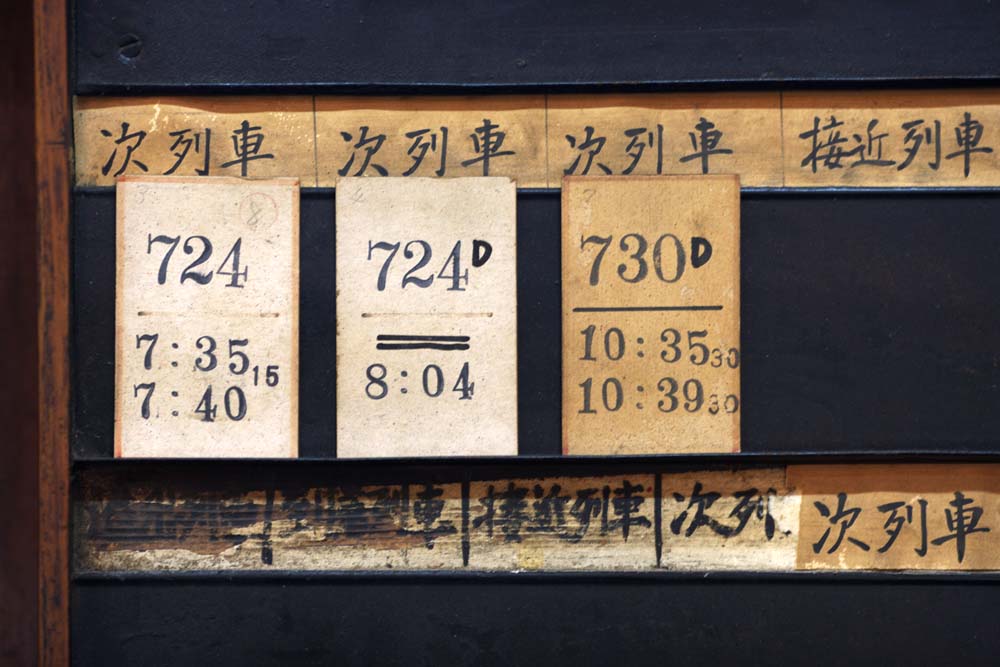 次列車 次列車 次列車 接近列車
8
724
7:35 15
7:40
724D
8:04
730D
10:35 30
10:39 30
接近列車 次列 次列車